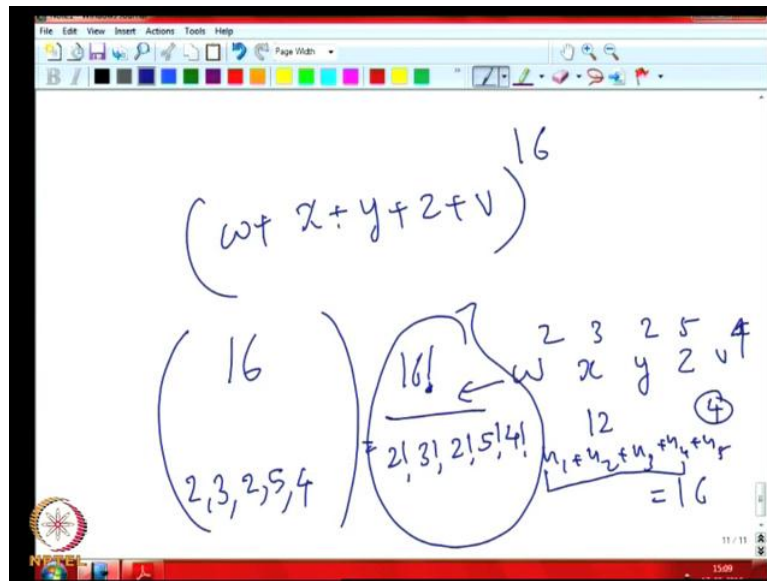 File Edit View Insert Actions Tools Help
Page Width
B I
(w + x + y + z + v)^16
(16 2,3,2,5,4) = 16! / 2! 3! 2! 5! 4! ← w^2 x^3 y^2 z^5 v^4
12 ④
n1 + n2 + n3 + n4 + n5
= 16
NPTEL
11 / 11
15:09